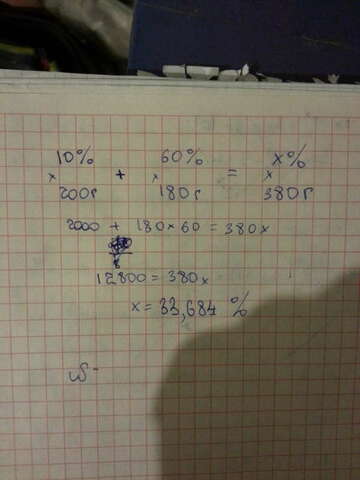 10% 60% x%
x + x = x
200г 180г 380г
2000 + 180×60 = 380x
12800 = 380x
x = 33,684 %